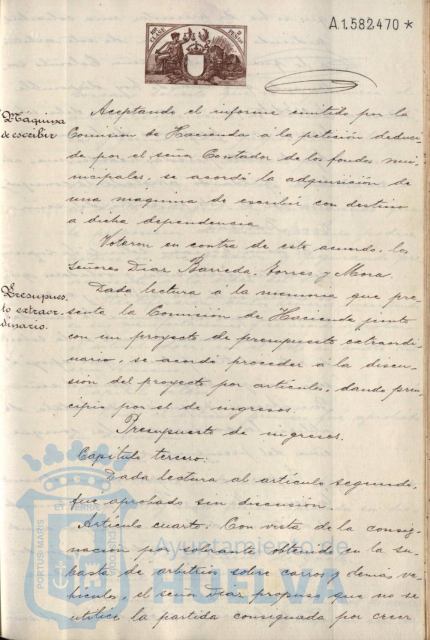 A.1.582470 *
Máquina
de escribir
Aceptando el informe emitido por la
Comisión de Hacienda á la petición deduci-
da por el señor Contador de los fondos mu-
nicipales, se acordó la adquisición de
una máquina de escribir con destino
a dicha dependencia.
Votaron en contra de este acuerdo, los
Señores Diaz Barreda, Torres y Mora.
Presupues-
to extraor-
dinario.
Dada lectura á la memoria que pre-
senta la Comisión de Hacienda junto
con un proyecto de presupuesto extraordi-
nario, se acordó proceder á la discu-
sión del proyecto por artículos, dando prin-
cipio por el de ingresos.
Presupuesto de ingresos.
Capítulo tercero.
Dada lectura al artículo segundo,
fue aprobado sin discusión.
Artículo cuarto: Con vista de la consig-
nación por sobrante obtenido en la su-
basta de arbitrio sobre carros y demás ve-
hículos, el señor Diaz propuso que no se
utilice la partida consignada por creer
PORTUS MARIS
Ayuntamiento de
HUELVA